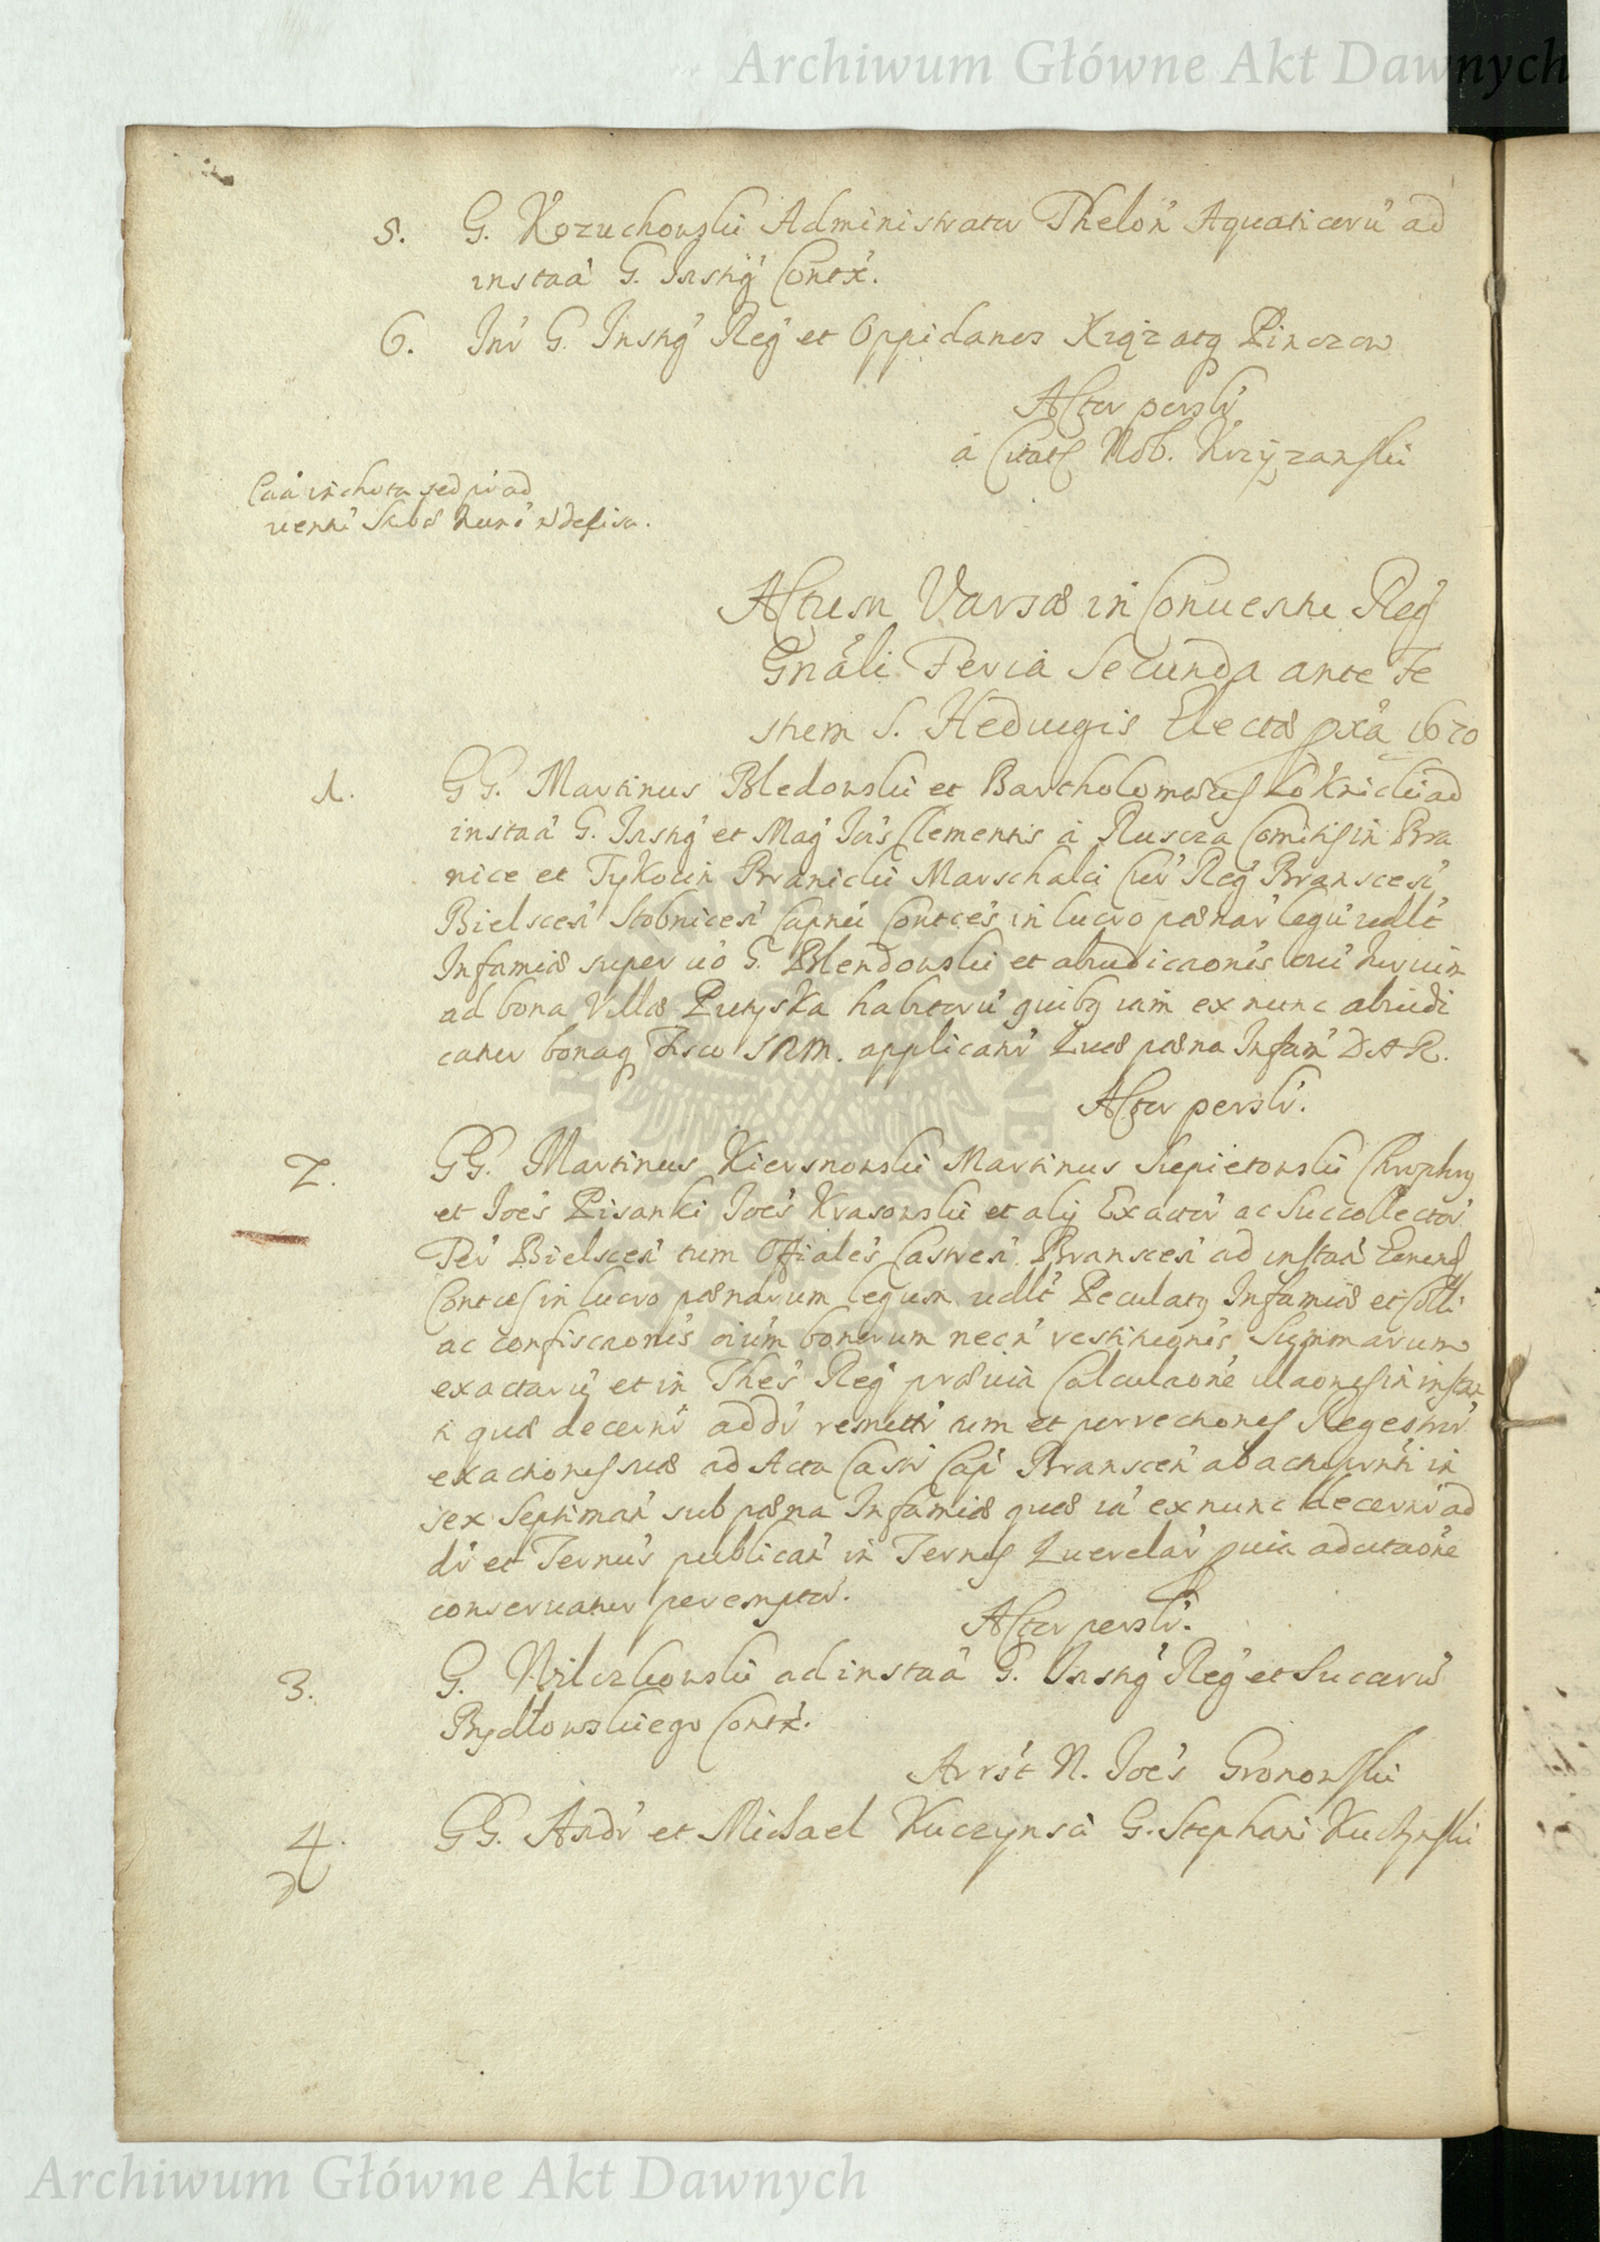 Archiwum Główne Akt Dawnych
5. G. Kozuchowski Administrator Thelon' Aquaticoru' ad
instaã G. Instig' Contx'.
6. Int' G. Instig' Reg' et Oppidanos Książ atq Pinczow
Actor persl'
à Citat Nob. Krzyzanski
Caã inchota sed
Actum Varsæ in Conuentu Reg'
Gnãli Feria Secunda ante Fe
stum S. Heduigis Electæ pxã 1670
1. GG. Martinus Bledowski et Bartholomæus Łoknicki ad
instaã G. Instig' et Mag' Io'is Clementis à Ruscza Comitis in Bra
nice et Tykocin Branicki Marschalci Cur' Reg' Branscen'
Bielscen' Stobnicen' Capnei Contces in lucro pœnar' legu' uidlt
Infamiæ super uo G. Blendowski et abiudicaonis oiu' Iurium
ad bona Villæ Puzyska habitoru' quibq iam ex nunc abiudi
catur bonaq Fisco SRM. applicant' Quæ pœna Infam' DAR.
Actor persl'.
2. GG. Martinus Kiersnowski Martinus Siepietowski Chrophorq
et Joe's Pisanki Joe's Krasowski et alij Exactor' ac Succollector'
Ter' Bielscen' tum Offiale's Castren' Branscen' ad instan' Eorund
Contces in lucro pœnarum legum uidlt Peculatq Infamiæ et Colli
ac confiscaonis oium bonorum necn' restituonis Summarum
exactaru' et in Thes' Reg' præuia Calculaone illaones in instan
ti quæ decerni' addi' remitti' tum et peruectiones Regestror'
exactiones suæ ad Acta Castri Cap' Branscen' ab act in
sex Septiman' sub pœna Infamiæ quæ ia' ex nunc decerni' ad
di' et Ternu's publican' in Ternis Querelar' quia adcitaone
conseruatur peremptor'.
Actor persl'.
3. G. Wilczkowski ad instaã G. Instig' Reg' et Succoru'
Bydłowskiego Contx'.
Arrst N. Joe's Gronowski
4. GG. Andr' et Michael Kuczynsci G. Stephani Kuczynski
Archiwum Główne Akt Dawnych